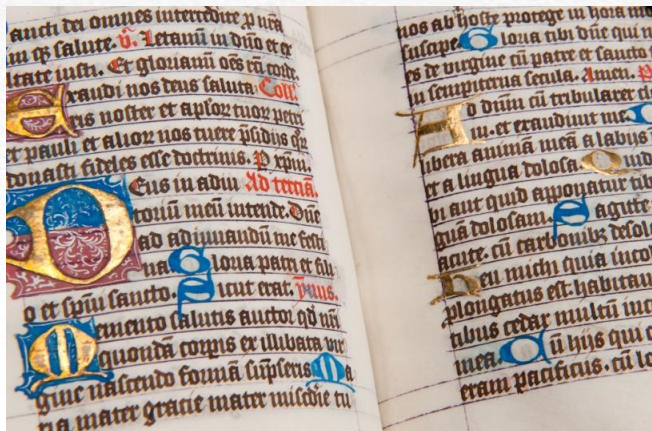 ancti dei omnes intercedite ꝓ nr̄a
m qꝫ salute. ℣. Letamī in dn̄o et ex
ultate iusti. Et gloriamī oēs rc̄ti corde.
Exaudi nos deus saluta Coll'
ris noster et apl'or tuor petri
et pauli et alior nos tuere p̄sidijs qr̄
donasti fideles esse doctrinis. P xp̄m.
Deus in adiu Ad terciā.
toriū meū intende. Dn̄e
ad adiuuandū me festi
na. Gloria patri et fili
o et sp̄ui sancto. Sicut erat. ymus.
Memento salutis auctor qd̄ nr̄i
quondā corpis ex illibata vir
gine nascendo formā sūpseris Ma
ria mater gracie mater mīscd̄ie tu
nos ab hoste protege in hora
suscipe. Gloria tibi dn̄e qui
es de virgine cū patre et sancto
in sempiterna secula. Amen.
Ad dn̄m cū tribularer
ui. et exaudiuit me.
libera animā meā a labijs
et a lingua dolosa. Quid
bi aut quid apponatur tibi
guā dolosam. Sagitte
acute. cū carbonibꝫ desol
Heu michi quia incol
plongatus est. habitaui
tibus cedar multū
mea. Cū hijs qui
eram pacificus. cū lo